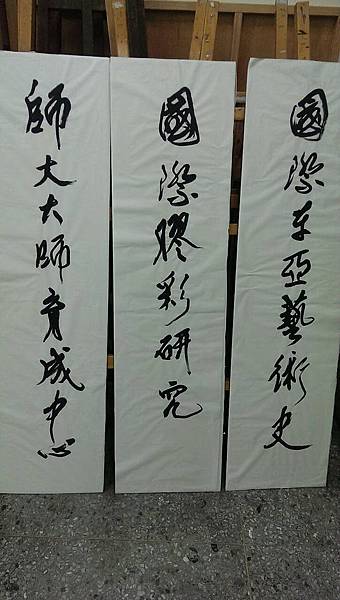 國際東亞藝術史
國際膠彩研究
師大大師育成中心